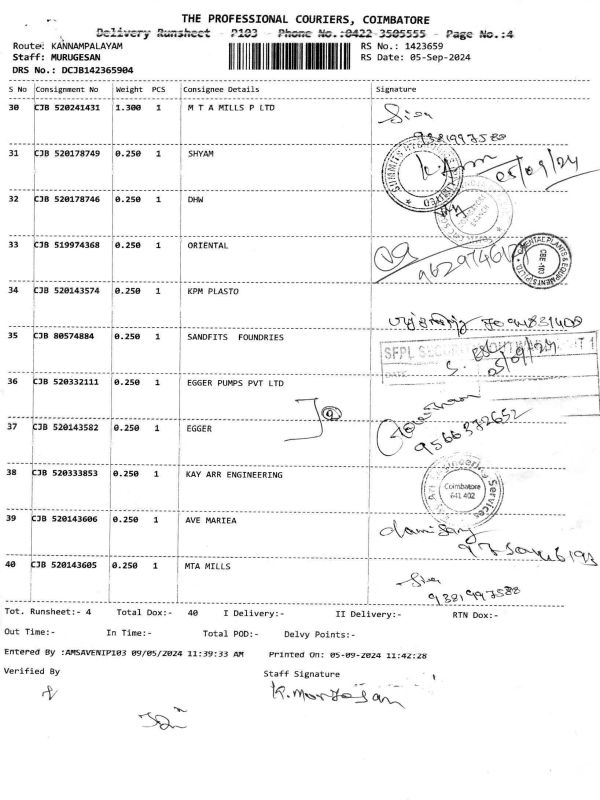 THE PROFESSIONAL COURIERS, COIMBATORE
Delivery Runsheet - P103 - Phone No.:0422-3505555 - Page No.:4
Route: KANNAMPALAYAM RS No.: 1423659
Staff: MURUGESAN RS Date: 05-Sep-2024
DRS No.: DCJB142365904
S No Consignment No Weight PCS Consignee Details Signature
30 CJB 520241431 1.300 1 M T A MILLS P LTD
9381997588
31 CJB 520178749 0.250 1 SHYAM
05/09/24
32 CJB 520178746 0.250 1 DHW
33 CJB 519974368 0.250 1 ORIENTAL
ORIENTAL PLANTS & EQUIPMENTS (P) LTD
CBE-103
34 CJB 520143574 0.250 1 KPM PLASTO
35 CJB 80574884 0.250 1 SANDFITS FOUNDRIES
SFPL
05/09/24
DATE
36 CJB 520332111 0.250 1 EGGER PUMPS PVT LTD
37 CJB 520143582 0.250 1 EGGER
9566372652
38 CJB 520333853 0.250 1 KAY ARR ENGINEERING
Engineering Services
Coimbatore
641 402
39 CJB 520143606 0.250 1 AVE MARIEA
40 CJB 520143605 0.250 1 MTA MILLS
9381997588
Tot. Runsheet:- 4 Total Dox:- 40 I Delivery:- II Delivery:- RTN Dox:-
Out Time:- In Time:- Total POD:- Delvy Points:-
Entered By :AMSAVENIP103 09/05/2024 11:39:33 AM Printed On: 05-09-2024 11:42:28
Verified By Staff Signature
K. Murgesan